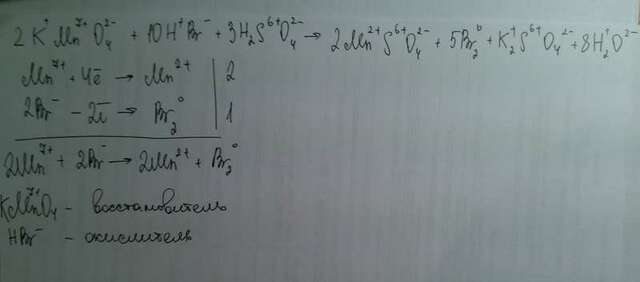 2K⁺Mn⁷⁺O₄²⁻ + 10H⁺Br⁻ + 3H₂S⁶⁺O₄²⁻ → 2Mn²⁺S⁶⁺O₄²⁻ + 5Br₂⁰ + K₂⁺S⁶⁺O₄²⁻ + 8H₂⁺O²⁻
Mn⁷⁺ + 4ē → Mn²⁺ | 2
2Br⁻ - 2ē → Br₂⁰ | 1
2Mn⁷⁺ + 2Br⁻ → 2Mn²⁺ + Br₂⁰
KMn⁷⁺O₄ - восстановитель
HBr⁻ - окислитель